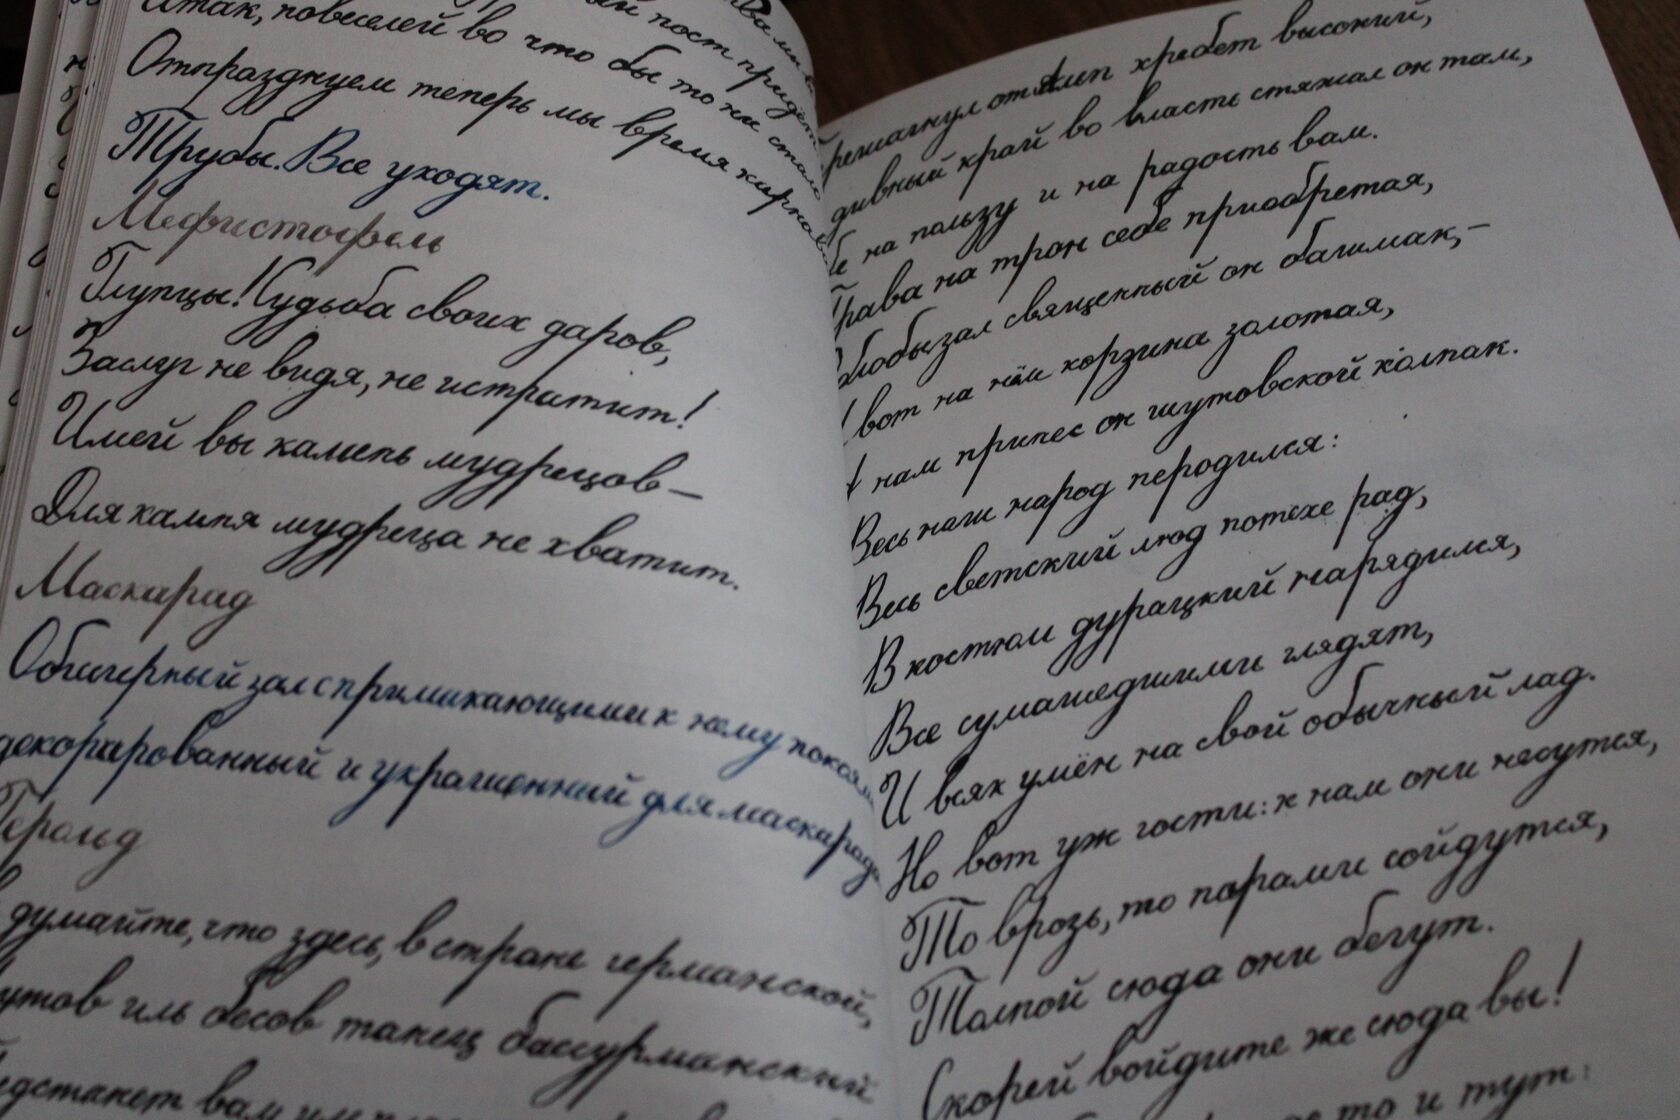 пост придёт
Итак, повеселей во что бы то ни стало
Отпразднуем теперь мы время карнавала
Трубы. Все уходят.
Мефистофель
Глупцы! Судьба своих даров,
Заслуг не видя, не истратит!
Имей вы камень мудрецов –
Для камня мудреца не хватит.
Маскарад
Обширный зал с примыкающими к нему покоями
декорированный и украшенный для маскарада
Герольд
думайте, что здесь, в стране германской,
иль бесов танец басурманский
вам
от Альп хребет высокий,
дивный край во власть стяжал он там,
на пользу и на радость вам.
Права на трон себе приобретая,
Облобызал священный он башмак, –
И вот на нём корзина золотая,
А нам принес он шутовской колпак.
Весь наш народ переродился:
Весь светский люд потехе рад,
В костюм дурацкий нарядился,
Все сумашедшими глядят,
И всяк умён на свой обычный лад.
Но вот уж гости: к нам они несутся,
То врозь, то парами сойдутся,
Толпой сюда они бегут.
Скорей войдите же сюда вы!
то и тут: